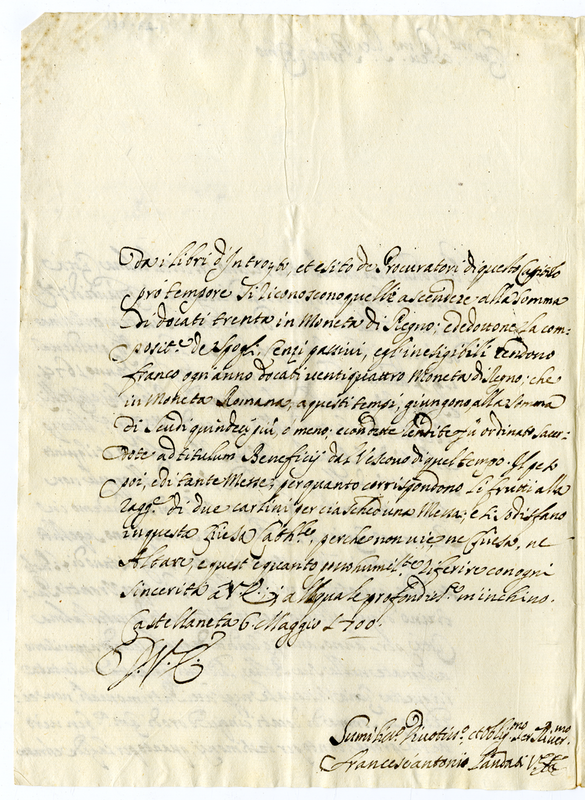 Da i libri d'Introyto, et esito de Procuratori di questo Capitolo
pro tempore si riconoscono quelle ascendere alla somma
di docati trenta in Moneta di Regno; e dedottone la com-
posit.e de Spogl, censi passivi, et inesigibili rendono
franco ogn'anno docati ventiquattro Moneta di Regno; che
in Moneta Romana, a questi tempi, giungono alla somma
di Scudi quindeci più, o meno; e con dette rendite fù ordinato sacer-
dote ad titulum Beneficij dal Vescovo di quel tempo. Il peso
poi, è di tante Messe, per quanto corrispondono li frutti alla
ragg.e di due carlini per ciascheduna Messa; e si sodisfano
in questa Chiesa Cath.le, perche non vi è, ne Chiesa, ne
Altare; e quest'è quanto posso humil.te riferire con ogni
sincerità a V. E.; all quale profondis.te m'inchino.
Castellaneta 6 Maggio 1700.
D. V. E.
Humilis.o Divotis.o et Oblig.mo Ser. River.mo
Francesc'antonio